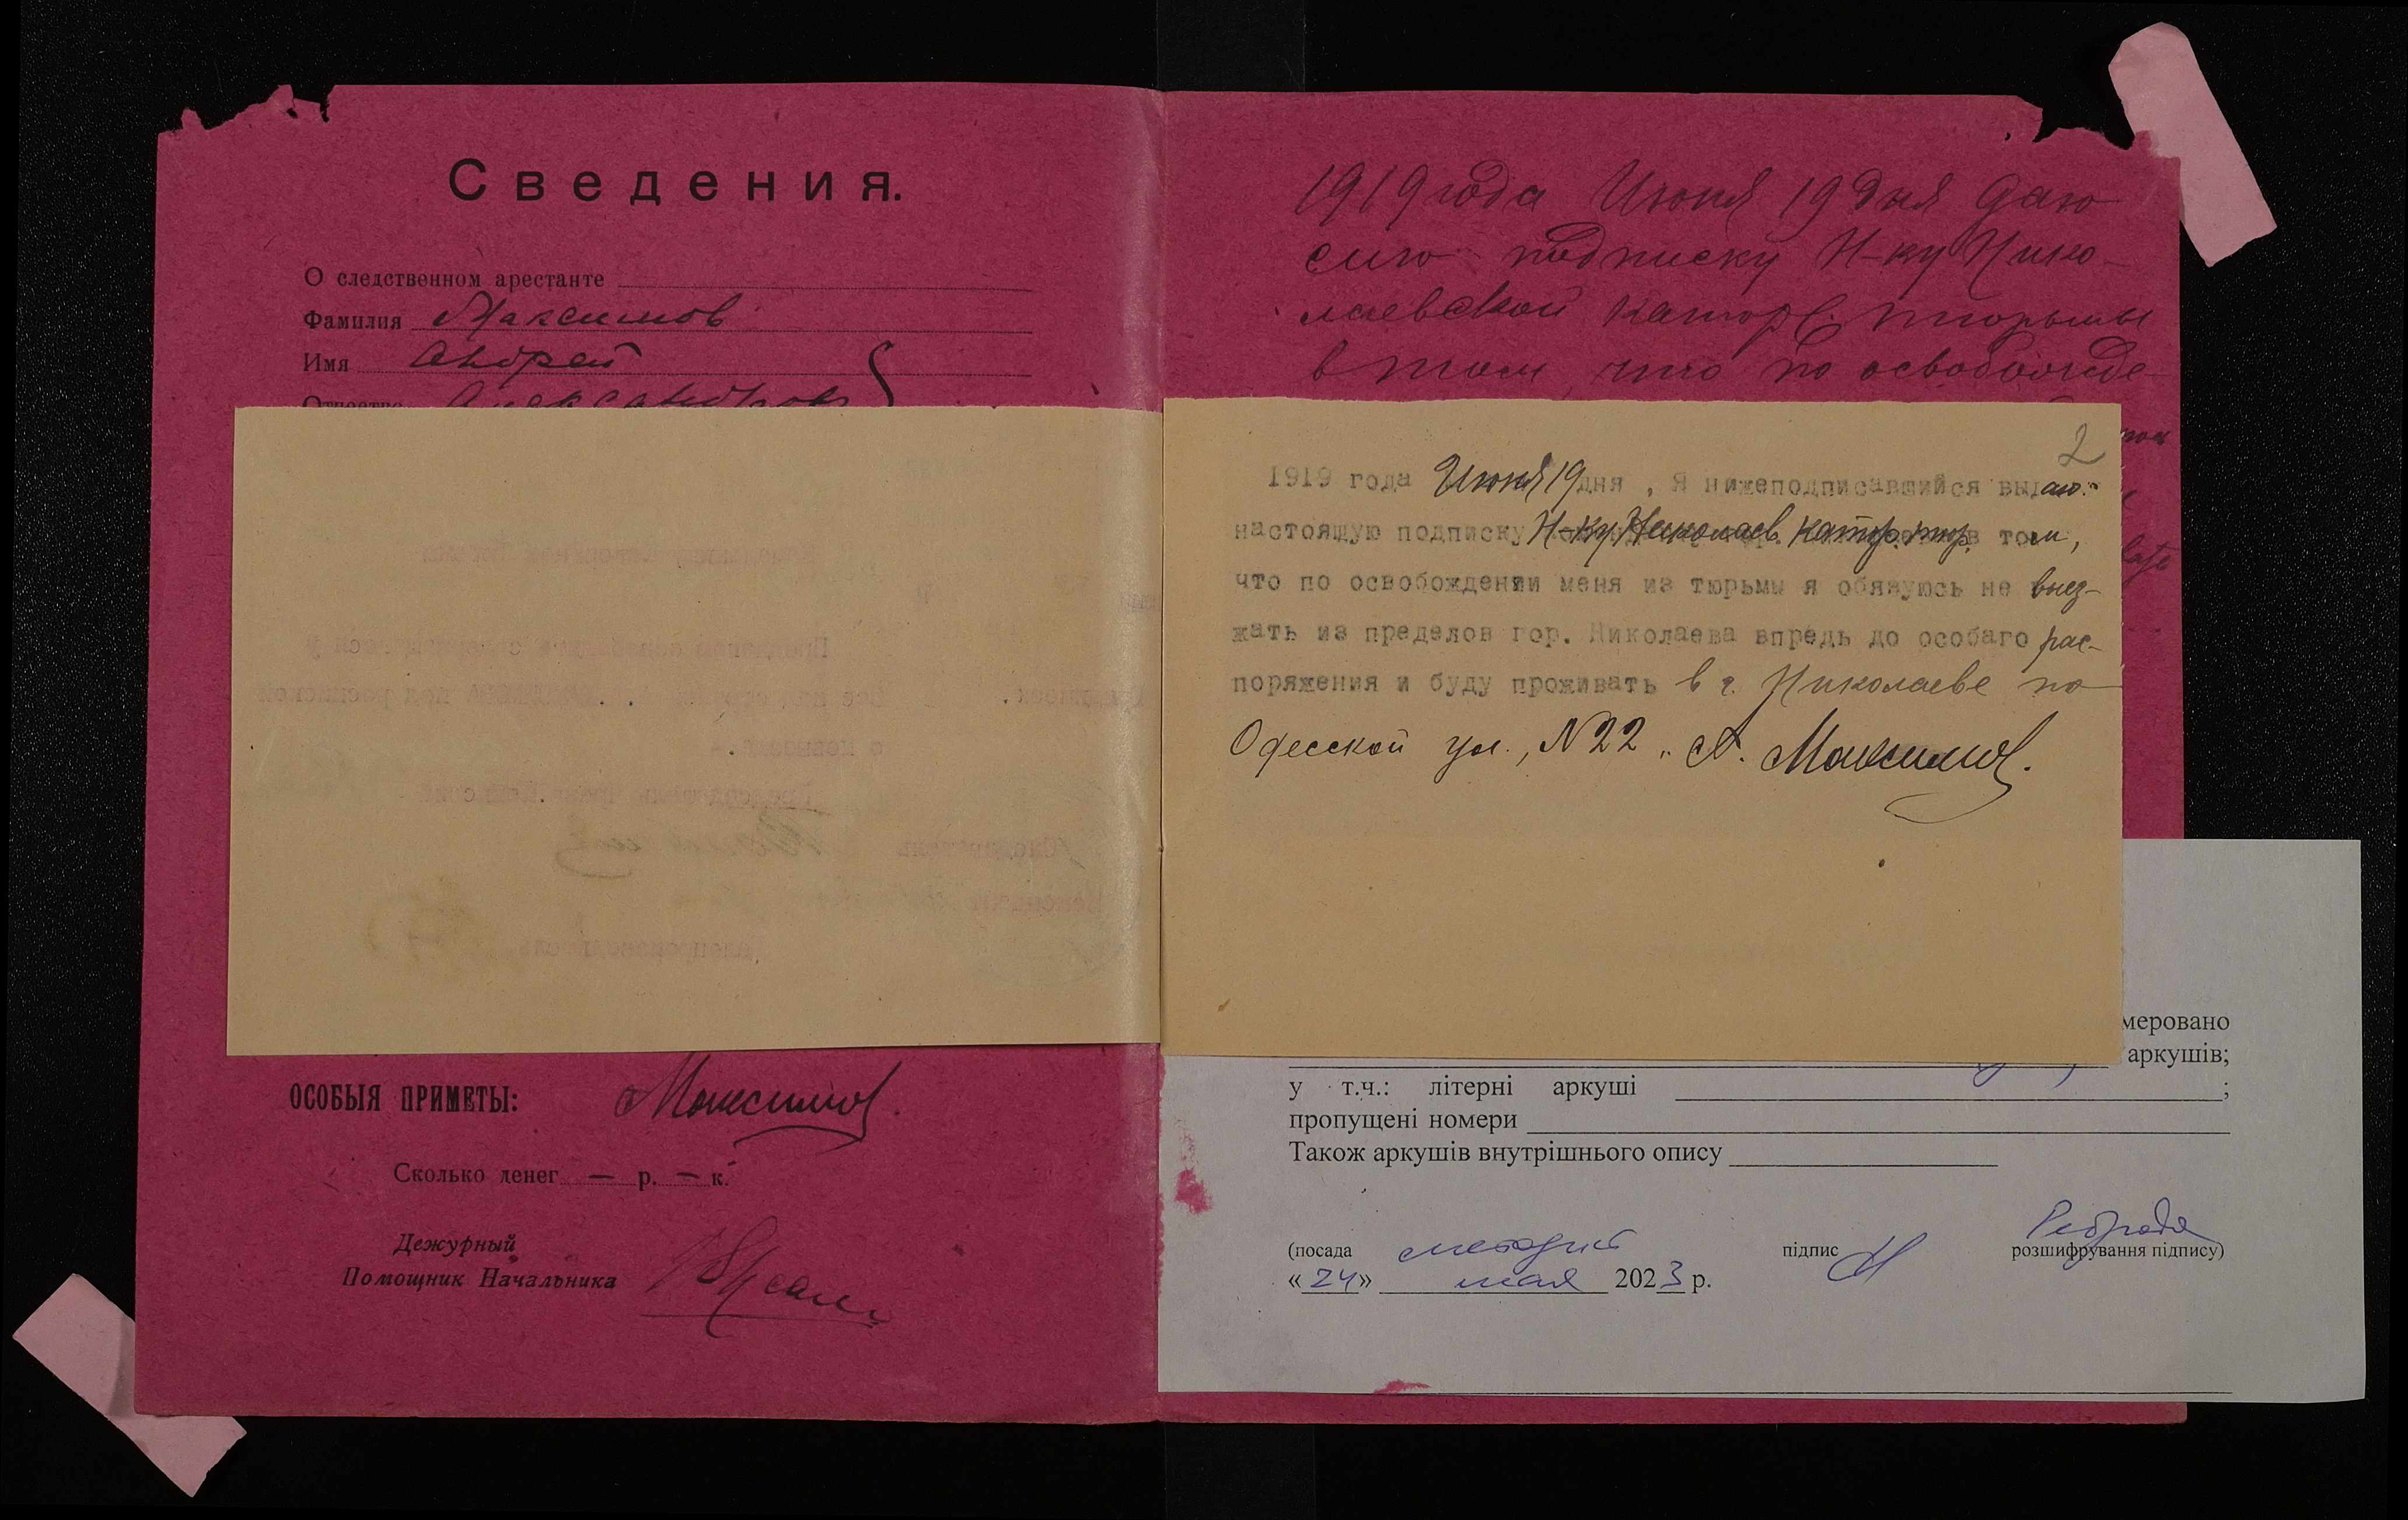 Сведения.
О следственном арестанте
Фамилия Максимов
Имя Андрей
Отчество Александров
ОСОБЫЯ ПРИМЕТЫ: Максимов.
Сколько денег — р. — к.
Дежурный
Помощник Начальника
1919 года Июня 19 дня даю
сию подписку Н-ку Нико-
лаевской каторж. тюрьмы
в том, что по освобожде-
2
1919 года Июня 19 дня , Я нижеподписавшийся выдаю
настоящую подписку Н-ку Николаев. катор. тюр. в том,
что по освобождении меня из тюрьмы я обязуюсь не выез-
жать из пределов гор. Николаева впредь до особаго рас-
поряжения и буду проживать в г. Николаеве по
Одесской ул., №22. А. Максимов.
меровано
аркушів;
у т.ч.: літерні аркуші ;
пропущені номери
Також аркушів внутрішнього опису
(посада підпис розшифрування підпису)
«24» мая 2023 р.